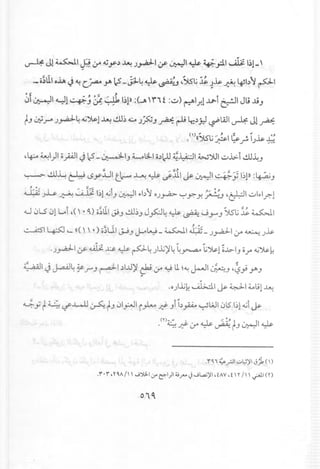 ١- إذا تخلَّف المتوجهة عليه اليمين عن الحضور بعد دعوته من قِبل المحكمة إلى مجلس
الحكم لأدائها بغير عذر عُدَّ ناكلاً، ويُقضى عليه بالحق -كما هو مصرح به في هذه المادة-.
وقد قال الشيخ أحمد إبراهيم (ت: ١٣٦٤هـ): «إذا طُلب ممن وُجهت إليه اليمين أن
يحضر إلى مجلس القاضي ليؤديها فلم يحضر وتكرر منه ذلك بعد إعلانه بالحضور مرتين ولم
يُبدِ عذراً شرعياً اعتُبر ناكلاً»(١).
وبذلك أخذت اللائحة التنفيذية للمادة الخامسة والخمسين -كما في الفقرة الرابعة منها،
ونصها: «إذا توجهت اليمين على المُدَّعى عليه بعد سماع الدعوى فيبلغ بذلك حسب
إجراءات التبليغ، ويُشعَر بوجوب حضوره لأداء اليمين وأنه إذا تخلف بغير عذر تقبله
المحكمة عُدَّ ناكلاً وسوف يقضى عليه بالنكول وذلك وفق المادة (١٠٩)، أما إن كان له
عذر يمنعه من الحضور - تقبله المحكمة - فيعامل وفق المادة (١١٠)» -، لكنها اكتفت
بإعلانه مرة واحدة إعلاناً مصحوباً بالإنذار بالحكم عليه عند تخلفه عن الحضور.
وهو قوي، ويتعين العمل به؛ لما فيه من قطع لإلداد الخصم وسرعةٍ بالفصل في القضية
بعد إقامة الحجة على المتخلف بإنذاره.
على أنه إذا كان الغائب مفقوداً أو غير معلوم العنوان ولم يكن للمدعي بينة لم توجه
عليه اليمين ولم يُقضَ عليه من غير بينة(٢).
(١) طرق الإثبات الشرعية ٣٩٦.
(٢) المغني ١١/ ٤١٢، ٤٨٧، الإنصاف في معرفة الراجح من الخلاف ١١/ ٢٩٨، ٣٠٣.
٥٦٩